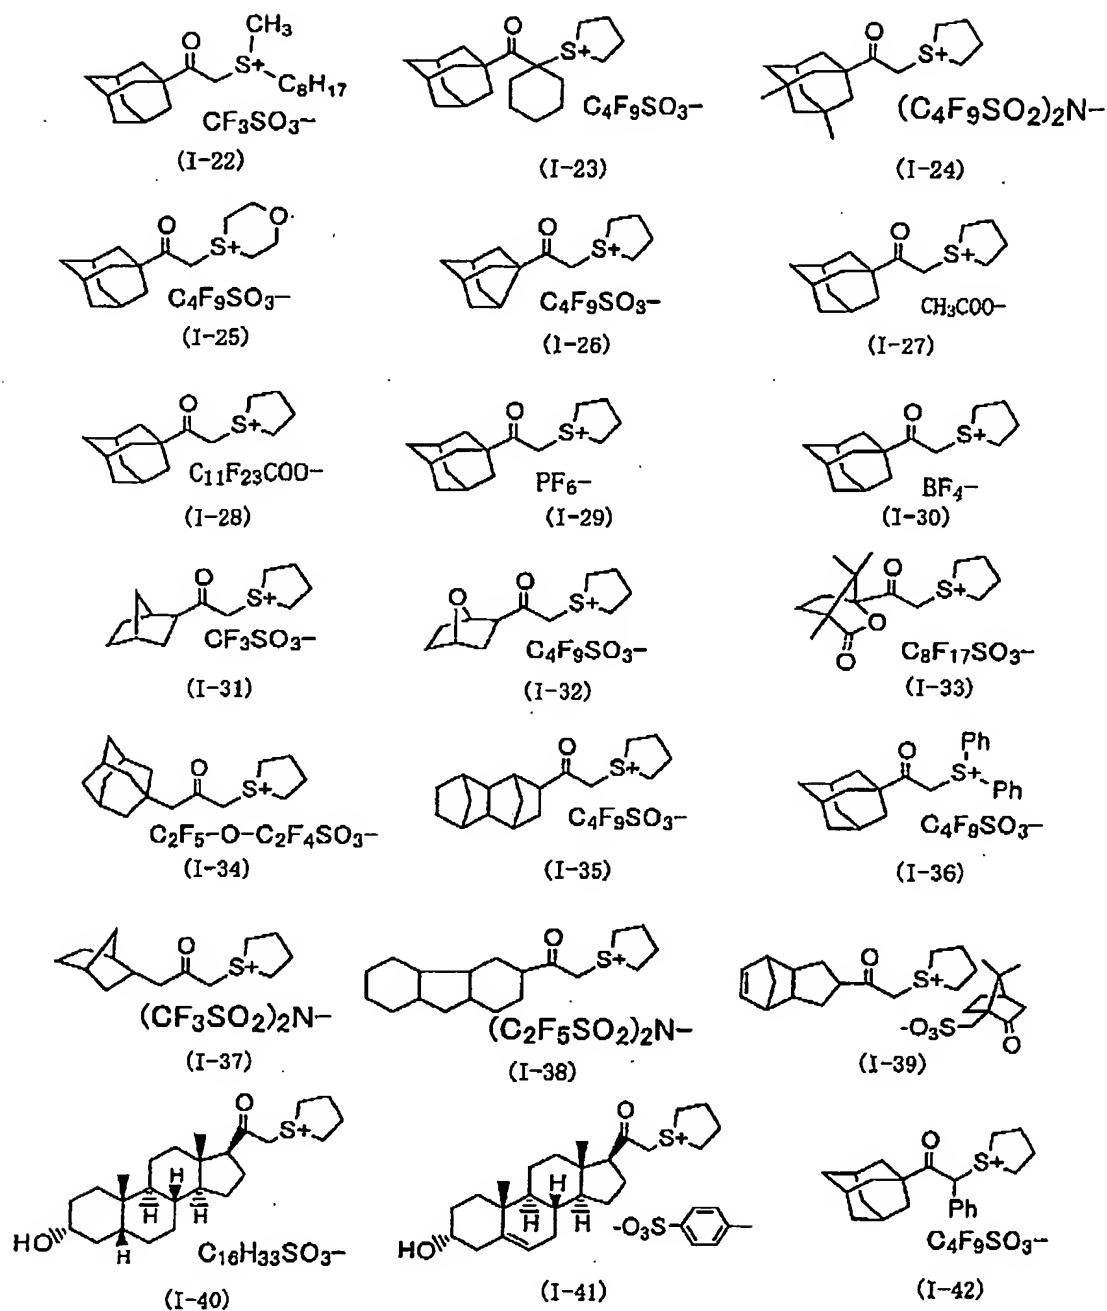 CH3
O
S+
C8H17
CF3SO3−
(I-22)
O
S+
C4F9SO3−
(I-23)
O
S+
(C4F9SO2)2N−
(I-24)
O
O
S+
C4F9SO3−
(I-25)
O
S+
C4F9SO3−
(I-26)
O
S+
CH3COO−
(I-27)
O
S+
C11F23COO−
(I-28)
O
S+
PF6−
(I-29)
O
S+
BF4−
(I-30)
O
S+
CF3SO3−
(I-31)
O
O
S+
C4F9SO3−
(I-32)
O
S+
O
O
C8F17SO3−
(I-33)
O
S+
C2F5-O-C2F4SO3−
(I-34)
O
S+
C4F9SO3−
(I-35)
Ph
O
S+
Ph
C4F9SO3−
(I-36)
O
S+
(CF3SO2)2N−
(I-37)
O
S+
(C2F5SO2)2N−
(I-38)
O
S+
-O3S
O
(I-39)
O
S+
H
H
H
HO
H
C16H33SO3−
(I-40)
O
S+
H
H
H
HO
-O3S
(I-41)
O
S+
Ph
C4F9SO3−
(I-42)